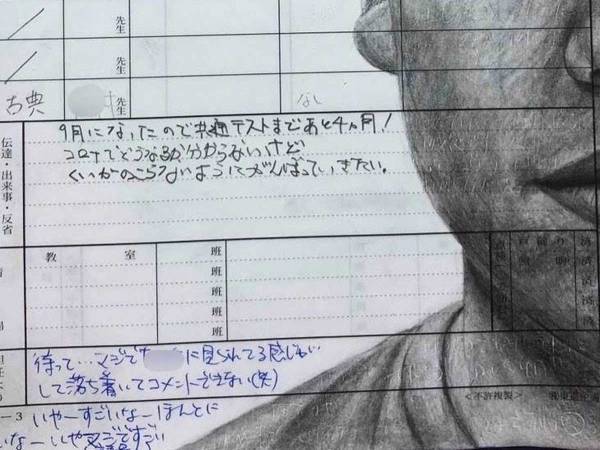 先生
先生
古典 先生 なし
伝達・出来事・反省
9月になったので共通テストまであと4ヶ月！
コロナでどうなるか分からないけど
くいがのこらないようにがんばっていきたい。
教室
班
班
班
班
待って…マジで に見られてる感じが
して落ち着いてコメントできない(笑)
<不許複製>
-3 いやーすごいなーほんとに
いなーいやマジですごい